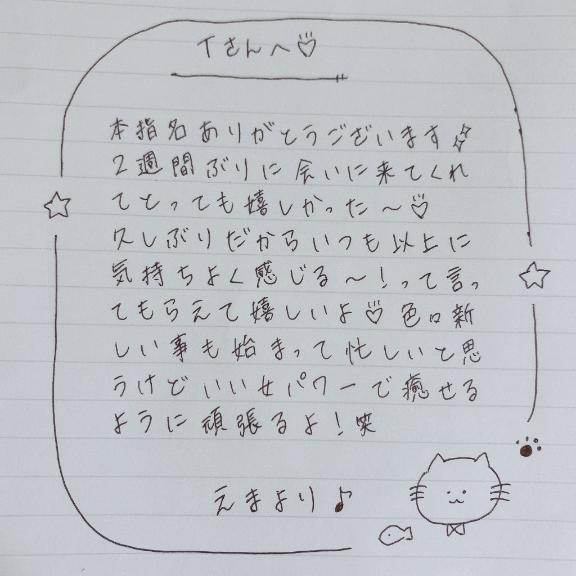 Tさんへ♡
本指名ありがとうございます
2週間ぶりに会いに来てくれ
てとっても嬉しかった〜♡
久しぶりだからいつも以上に
気持ちよく感じる〜!って言っ
てもらえて嬉しいよ♡色口新
しい事も始まって忙しいと思
うけどいい女パワーで癒せる
ように頑張るよ!笑
えまより♪